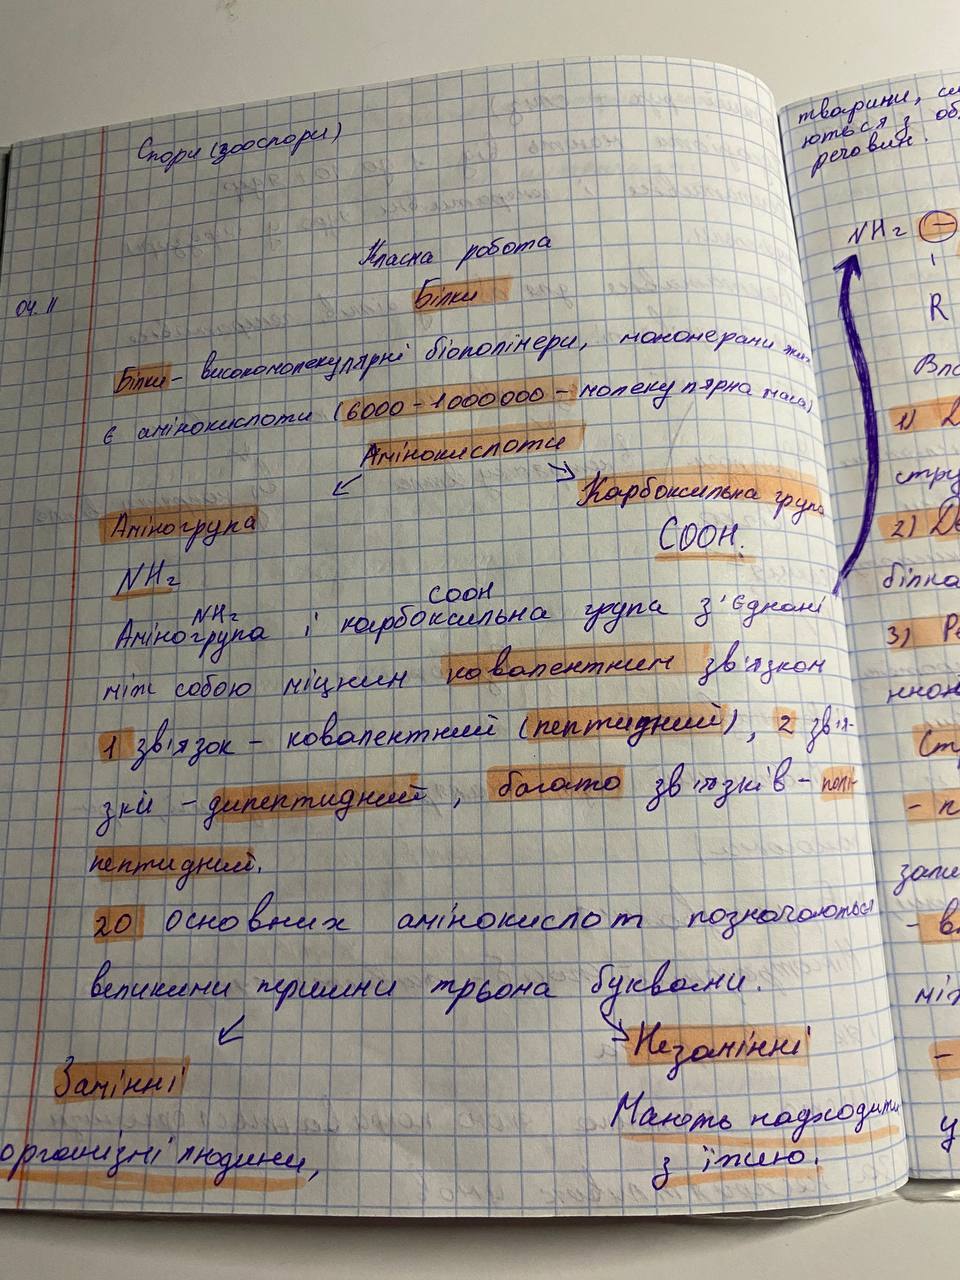 Спори (зооспори)
Класна робота
04.11
Білки
Білки - високомолекулярні біополімери, мономерами яких
є амінокислоти (6000 - 1000000 - молекулярна маса)
Амінокислоти
Аміногрупа
Карбоксильна група
NH2
COOH.
NH2 COOH
Аміногрупа і карбоксильна група з'єднані
між собою міцним ковалентним зв'язком
1 зв'язок - ковалентний (пептидний), 2 зв'я-
зки - дипептидний, багато зв'язків - полі-
пептидний.
20 основних амінокислот позначаються
великими першими трьома буквами.
Замінні
Незамінні
організмі людини,
Мають надходити
з їжею.
тварини,
ються з об
речовин.
NH2 -
R
1)
стру
2) Де
білка
3) Ре
Ст
- п
- в
між
-
у